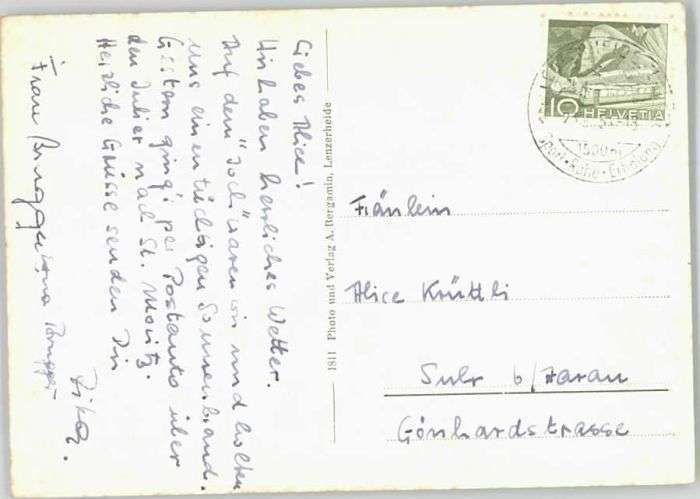 Liebes Alice!
Wir haben herrliches Wetter.
Auf dem "Joch" waren wir und holten
uns einen tüchtigen Sonnenbrand.
Gestern ging's per Postauto über
den Julier nach St. Moritz.
Herzliche Grüsse senden Dir
Frau Brugger
1811 Photo und Verlag A. Bergamin, Lenzerheide
10 HELVETIA
1500 m
Sport-Ruhe-Erholung
Fräulein
Alice Krüttli
Suhr b/Aarau
Gönhardstrasse